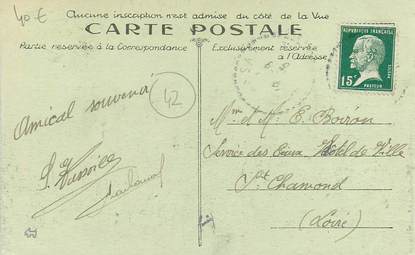 40 €
Aucune inscription n'est admise du côté de la Vue
CARTE POSTALE
Partie réservée à la Correspondance
Exclusivement réservée
à l'Adresse
RÉPUBLIQUE FRANÇAISE
15c
PASTEUR
42
Amical souvenir
Mme et Mr E. Boiron
Service des Eaux Hôtel de Ville
St Chamond
(Loire)